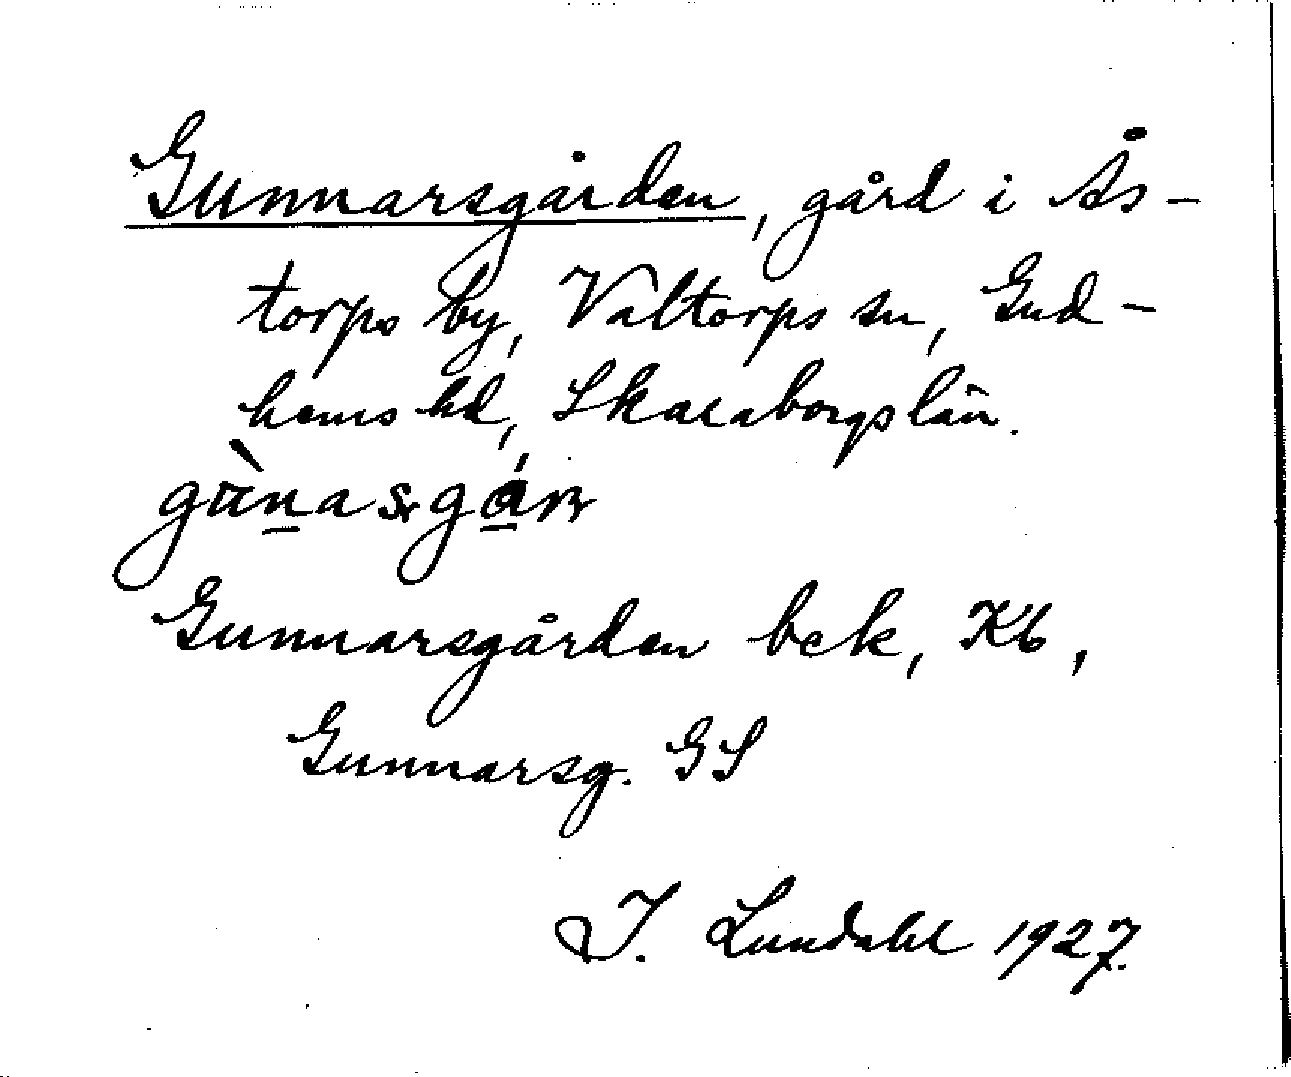 Gunnarsgården, gård i Ås-
torps by, Valtorps sn, Gud-
hems hd, Skaraborgs län.
Gunnarsgården bek, Kb,
Gunnarsg. GS
I. Lundahl 1927.